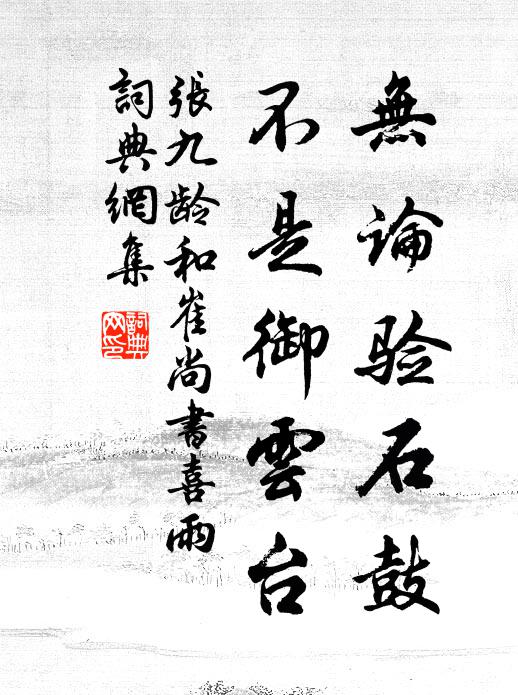 無論验石鼓
不是御雲台
張九龄和崔尚書喜雨
詞典網集
詞典
网印